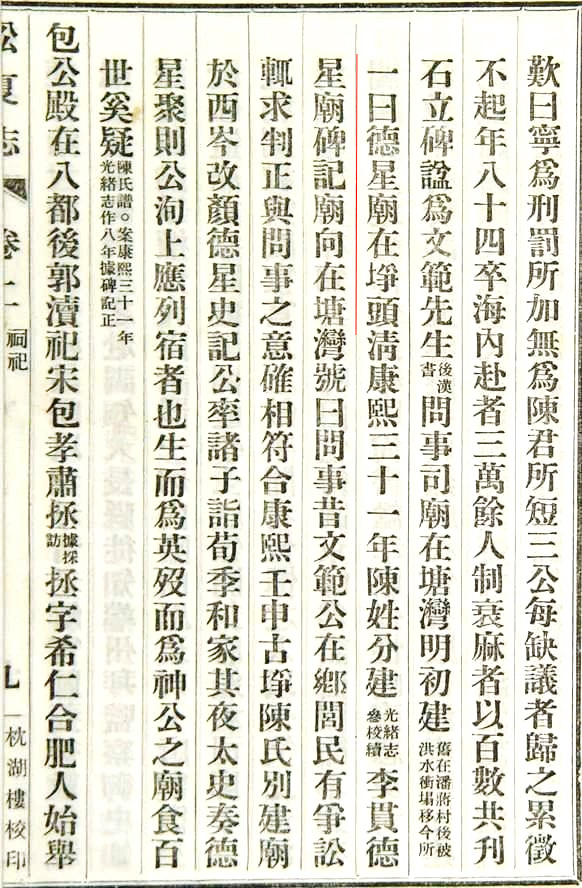 歎曰寧爲刑罰所加無爲陳君所短三公每缺議者歸之累徵
不起年八十四卒海內赴者三萬餘人制衰麻者以百數共刊
石立碑諡爲文範先生後漢書問事司廟在塘灣明初建舊在潘蔣村後被洪水衝塌移今所
一曰德星廟在埩頭淸康熙三十一年陳姓分建光緒志參校續李貫德
星廟碑記廟向在塘灣號曰問事昔文範公在鄉閭民有爭訟
輒求判正與問事之意確相符合康熙壬申古埩陳氏別建廟
於西岑改顏德星史記公率諸子詣荀季和家其夜太史奏德
星聚則公洵上應列宿者也生而爲英歿而爲神公之廟食百
世奚疑陳氏譜○案康熙三十一年光緒志作八年據碑記正
包公殿在八都後郭瀆祀宋包孝肅拯據採訪拯字希仁合肥人始舉
松夏志
卷二
祠祀
九
枕湖樓校印